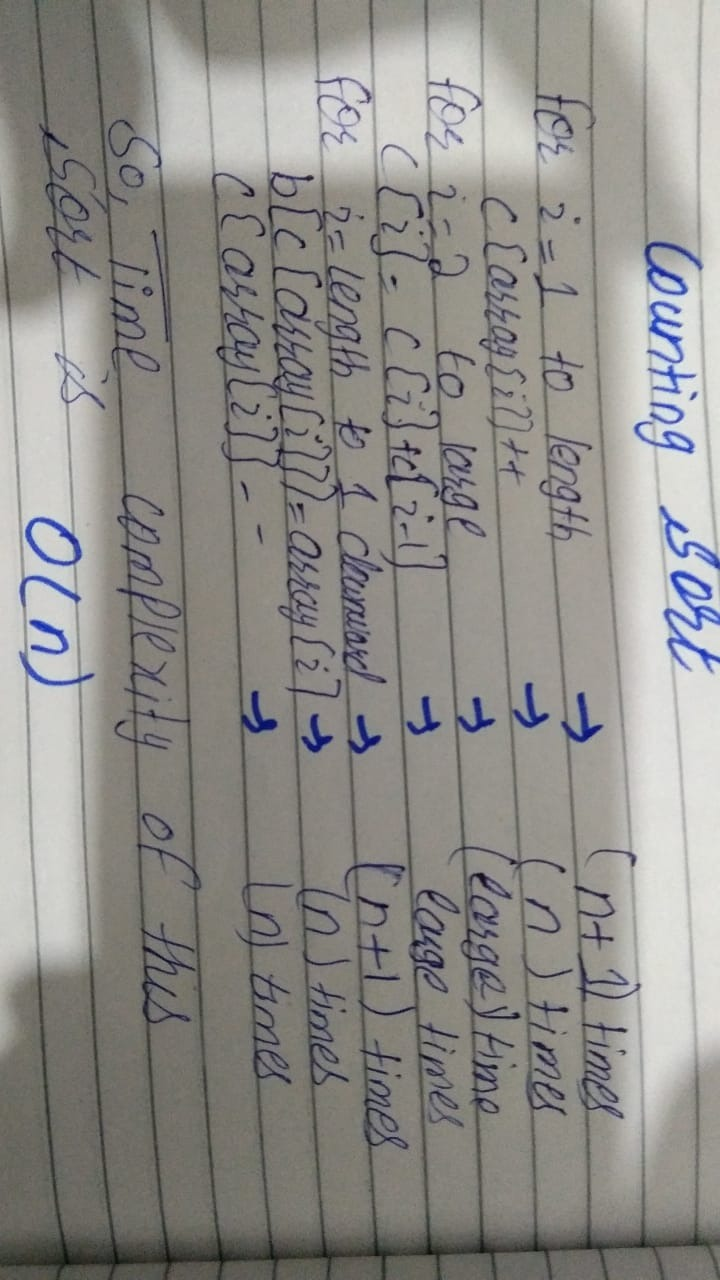 Counting Sort
for i=1 to length → (n+1) times
c[array[i]++ → (n) times
for i=2 to large → (large) time
c[i]= c[i]+c[i-1] → large times
for i=length to 1 → (n+1) times
b[c[array[i]]]=array[i] → (n) times
c[array[i]]-- → (n) times
So, Time complexity of this
Sort is O(n)